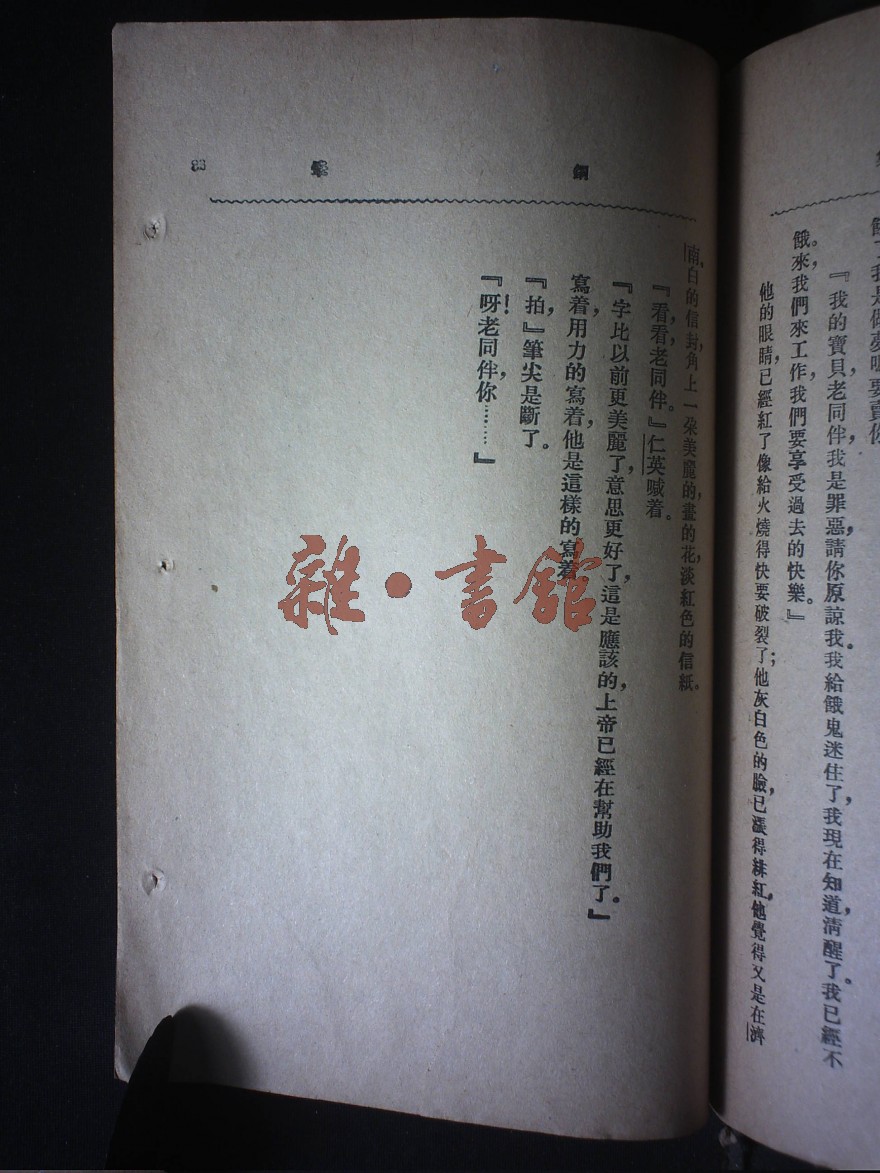 餓了我是做夢呢要賣你
『我的寶貝老同伴，我是罪惡，請你原諒我。我給餓鬼迷住了，我現在知道，清醒了。我已經不
餓。來，我們來工作，我們要享受過去的快樂。』
他的眼睛，已經紅了像給火燒得快要破裂了；他灰白色的臉，已漲得絑紅，他覺得又是在濟
南，白的信封，角上一朶美麗的，畫的花，淡紅色的信紙。
『看，看，老同伴。』仁英喊着。
『字比以前更美麗了，意思更好了，這是應該的，上帝已經在幫助我們了。』
寫着，用力的寫着，他是這樣的寫着
『拍，』筆尖是斷了。
『呀！老同伴，你………』
鋼
38
雜·書館